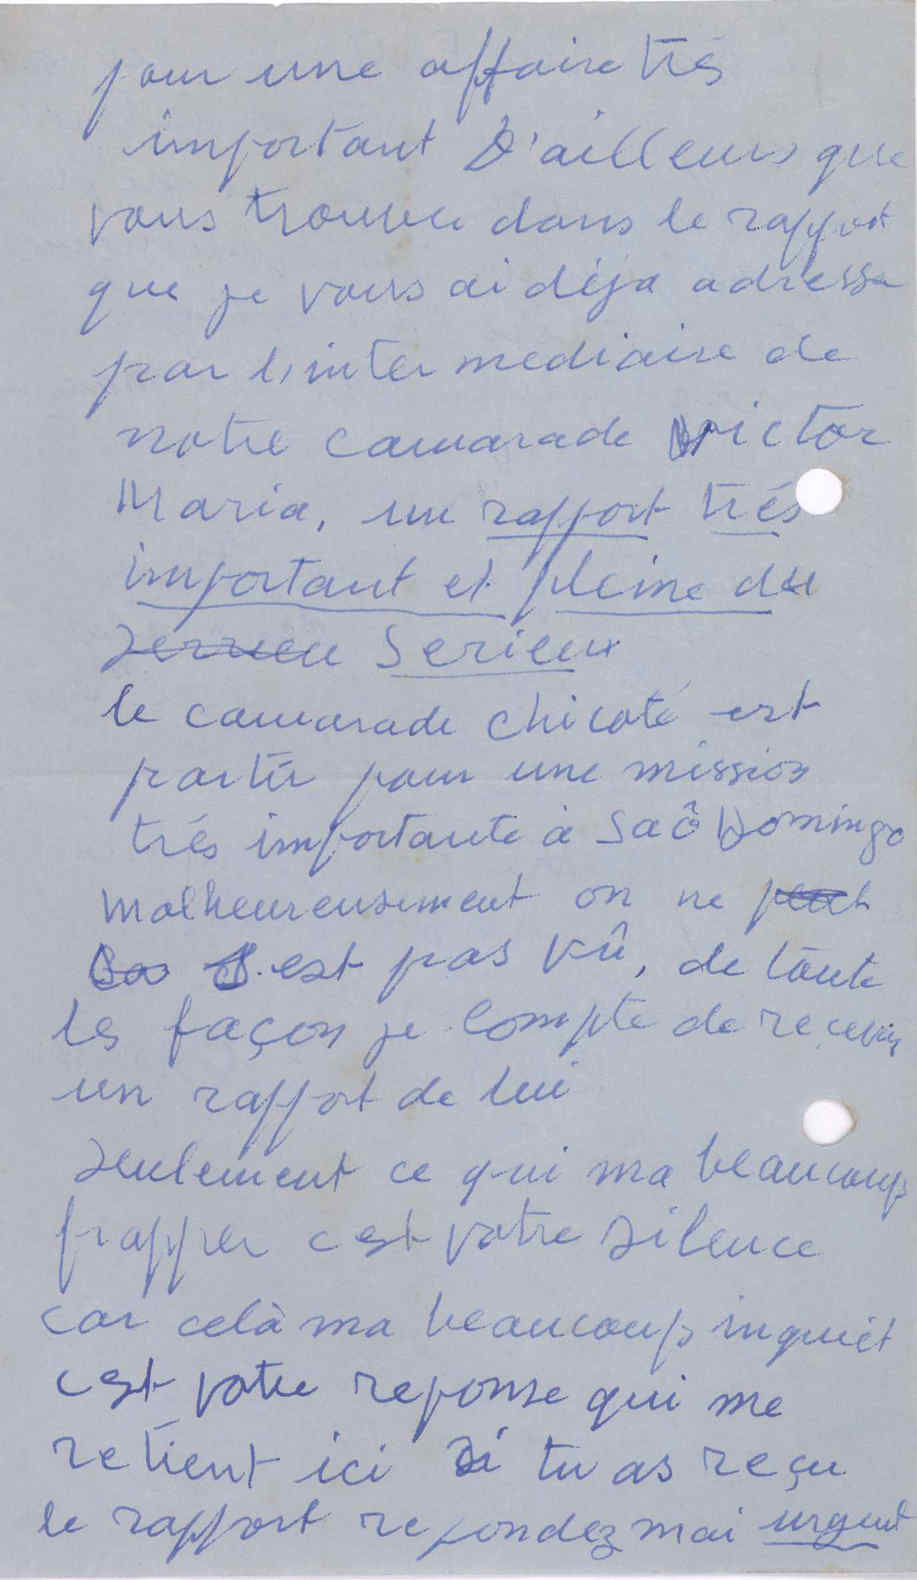 pour une affaire trés
important D'ailleurs que
vous trouvee dans le rapport
que je vous ai déja adresse
par l'intermediaire de
notre camarade victor
Maria, un rapport trés
important et pleine du
Serieux
le camarade chicoté est
partir pour une mission
trés importante à Saô Domingo
Malheureusement on ne peut
est pas vû, de toute
les façon je compte de recevoir
un rapport de lui
seulement ce qui ma beaucoup
frapper c est votre silence
car celà ma beaucoup inquiét
c est votre reponse qui me
retient ici si tu as reçu
le rapport repondez moi urgent